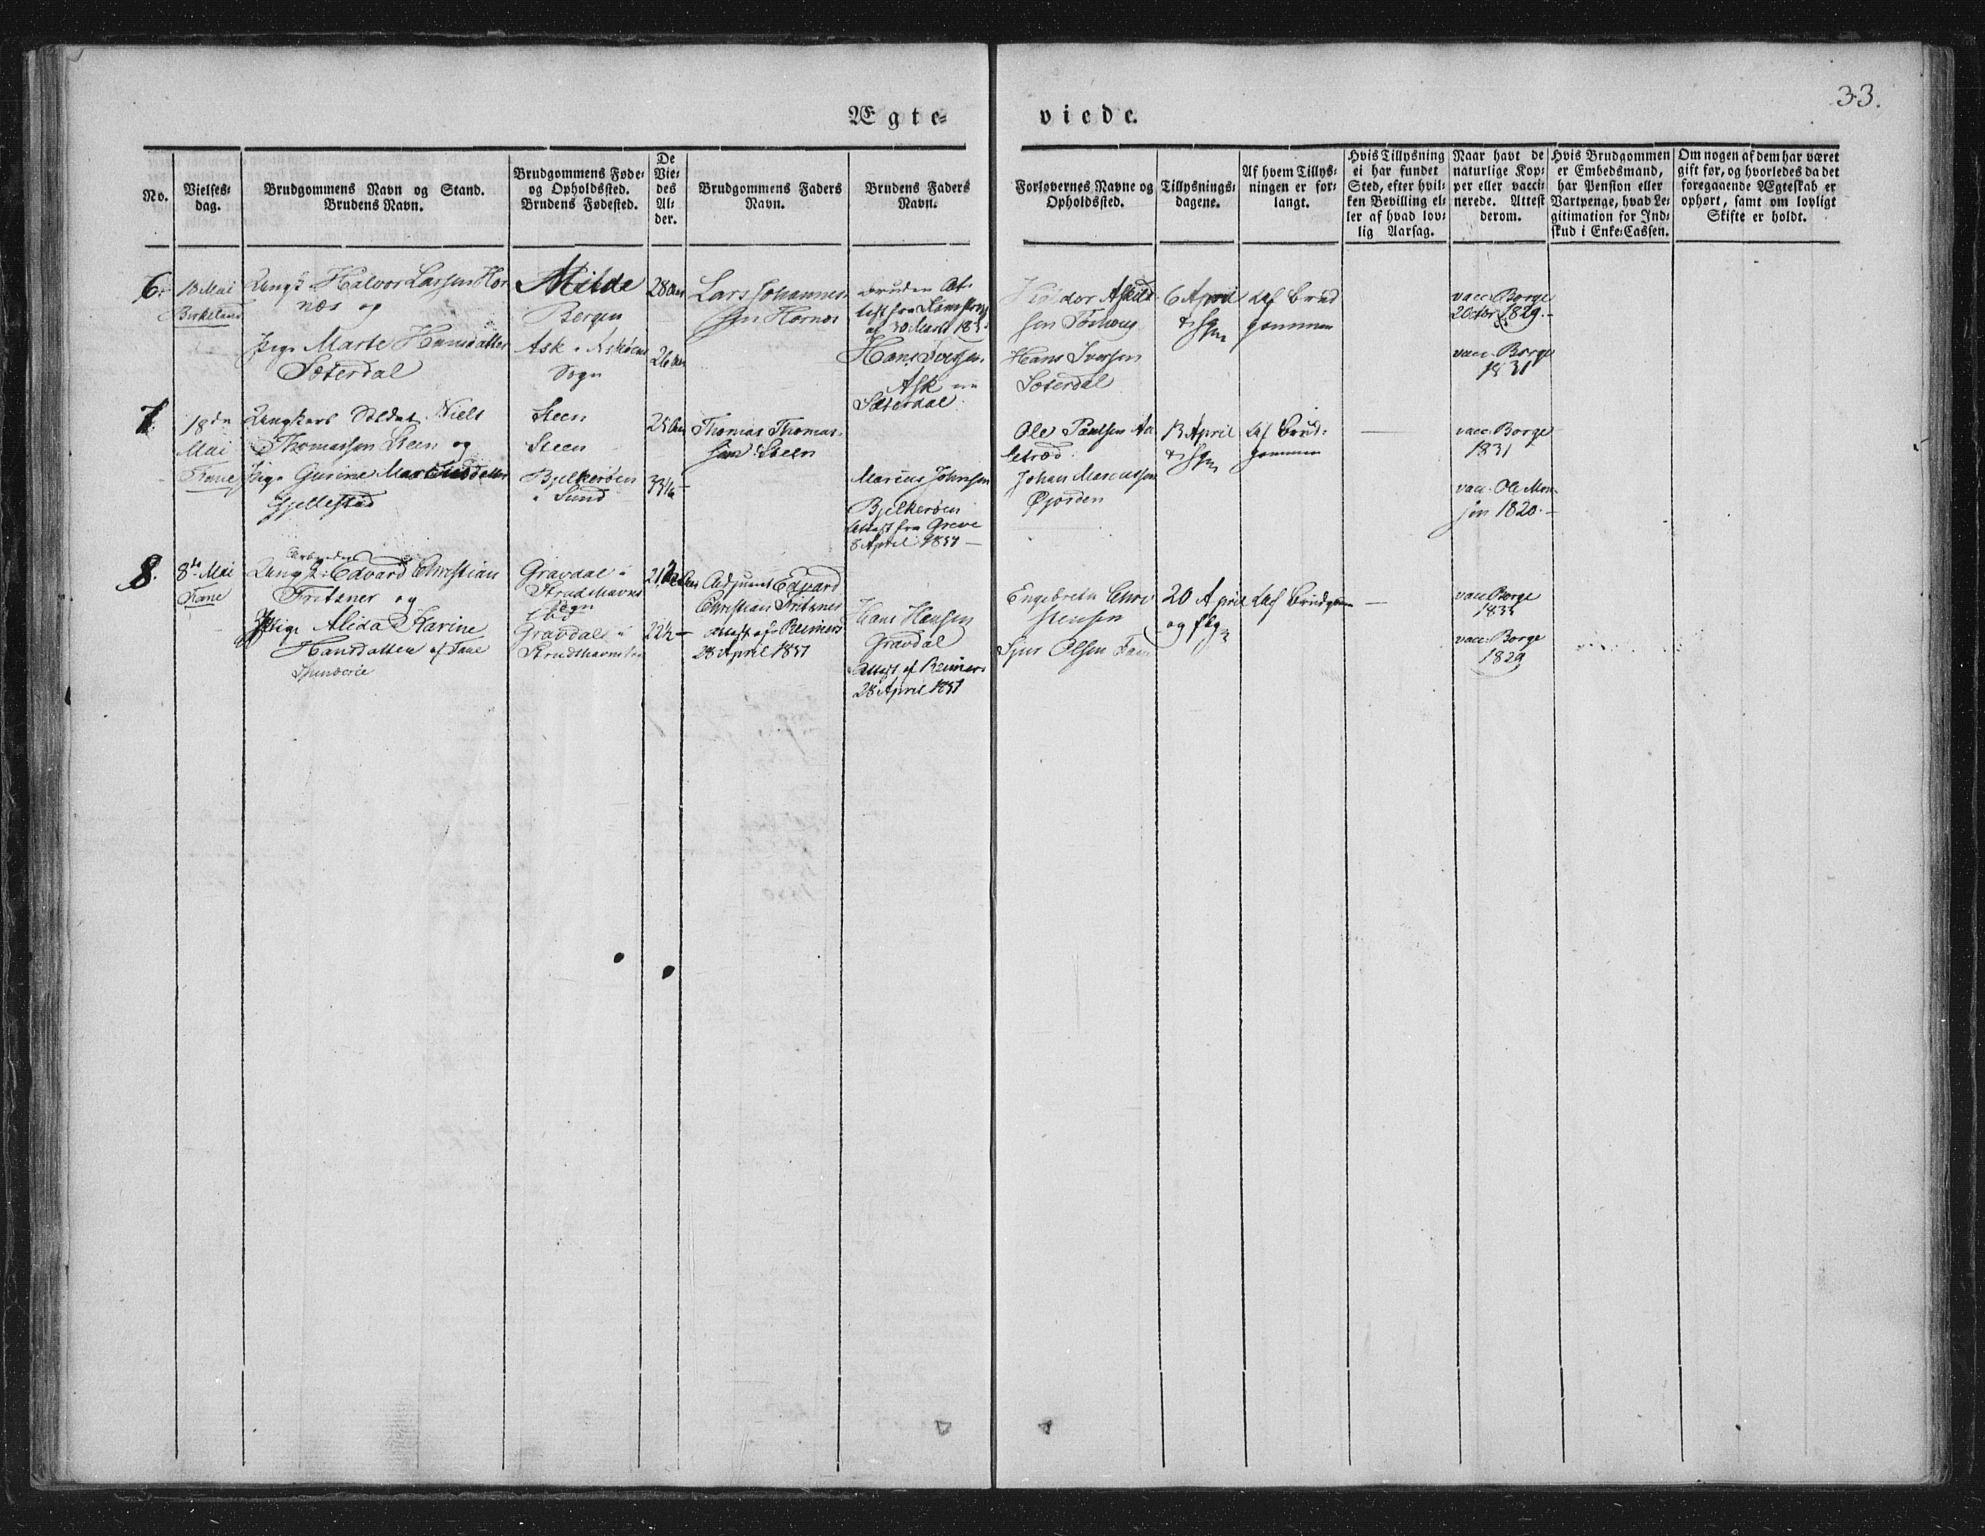 33.
Ægte-
viede.
No.
Vielses-
dag.
Brudgommens Navn og Stand.
Brudens Navn.
Brudgommens Føde-
og Opholdssted.
Brudens Fødested.
De
Vie-
des
Al-
der.
Brudgommens Faders
Navn.
Brudens Faders
Navn.
Forlovernes Navne og
Opholdssted.
Tillysnings-
dagene.
Af hvem Tillys-
ningen er for-
langt.
Hvis Tillysning
ei har fundet
Sted, efter hvil-
ken Bevilling el-
ler af hvad lov-
lig Aarsag.
Naar havt de
naturlige Kop-
per eller vacci-
nerede. Attest
derom.
Hvis Brudgommen
er Embedsmand,
har Pension eller
Vartpenge, hvad Le-
gitimation for Ind-
skud i Enke-Cassen.
Om nogen af dem har været
gift før, og hvorledes da det
foregaaende Ægteskab er
ophørt, samt om lovligt
Skifte er holdt.
6.
13 Mai
Birkeland
Halvor Larsen Hor
næs og
Pige Marte Hansdatter
Sæterdal
Milde
Bergen
Ask i Askøens
Sogn
28 Aar
26 Aar
Lars Johannes-
sen Hornæs
Bruden At-
test fra
af 30 Marts
Hans Iversen
Ask
Sæterdal
Askild
sen
Hans Iversen
Sæterdal
6 April
Af Brud
gommen
vacc. Borge
2 Octbr 1829.-
vacc. Borge
1831
7
18de
Mai
Fane
Ungkarl Soldat Niels
Thomassen Steen og
Pige Gurine Marcusdatter
Gjellestad
Steen
Steen
Bjelkerøen
i Sund
25 Aar
33 1/2 -
Thomas Thomas-
sen Steen
Marcus Johnsen
Bjelkerøen
Attest fra Greve
8 April 1851 -
Ole Poulsen
Johan Marcussen
13 April
Af Brud-
gommen
vacc. Borge
1831
vacc. Ole Mon-
sen 1820.-
8.
8de Mai
Fane
Arbeider
Edvard Christian
Fritzner og
Pige Alida Karine
Hansdatter af Fane
Gravdal i
Strudshavns
Sogn
Gravdal i
22 1/2 -
Adjunct Edvard
Christian Fritzner
Attest af Reimers
28 April 1851
Hans Hansen
Gravdal
Attest af Reimers
28 April 1851
Engebreth Chri
stensen
Sjur Olsen Fane
20 April
og flg
Af Brudgom
vacc Borge
1835
vacc. Borge
1829